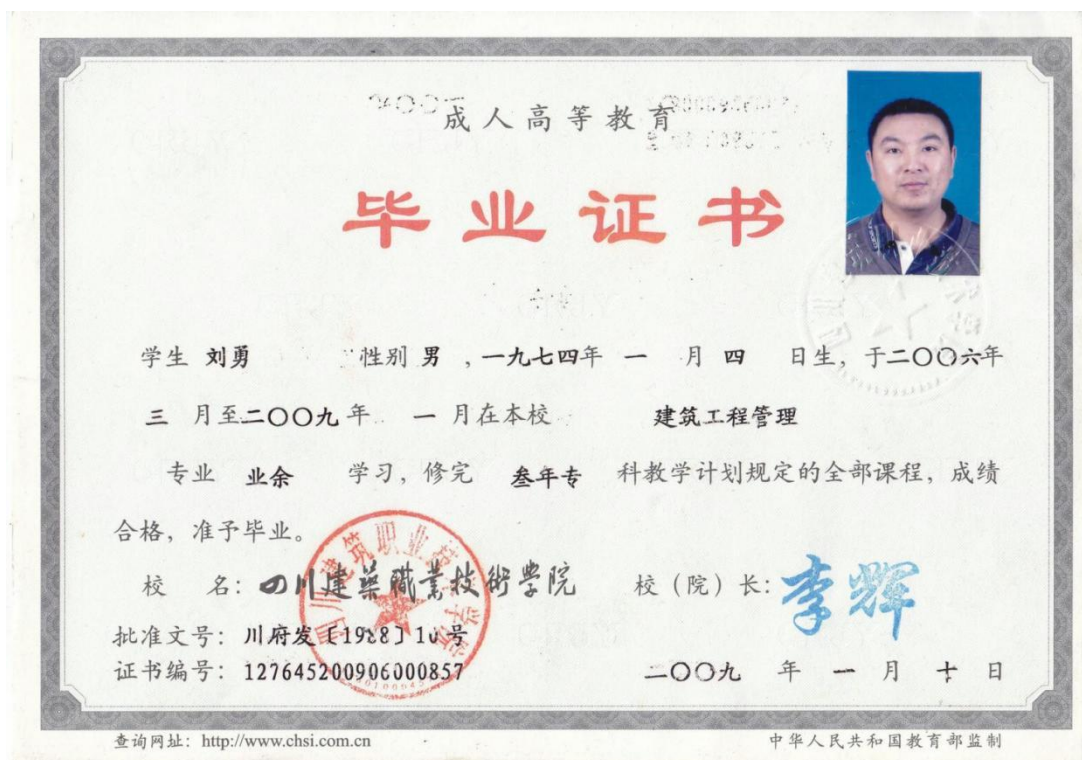 成人高等教育
毕业证书
学生 刘勇 性别 男 ,一九七四年 一 月 四 日生, 于二〇〇六年
三 月至二〇〇九年 一 月在本校 建筑工程管理
专业 业余 学习, 修完 叁年专 科教学计划规定的全部课程, 成绩
合格, 准予毕业。
校 名: 四川建築職業技術學院 校(院)长: 李辉
批准文号: 川府发〔1988〕10号
证书编号: 127645200906000857 二〇〇九 年 一 月 十 日
四川建筑职业技术学院
查询网址: http://www.chsi.com.cn 中华人民共和国教育部监制